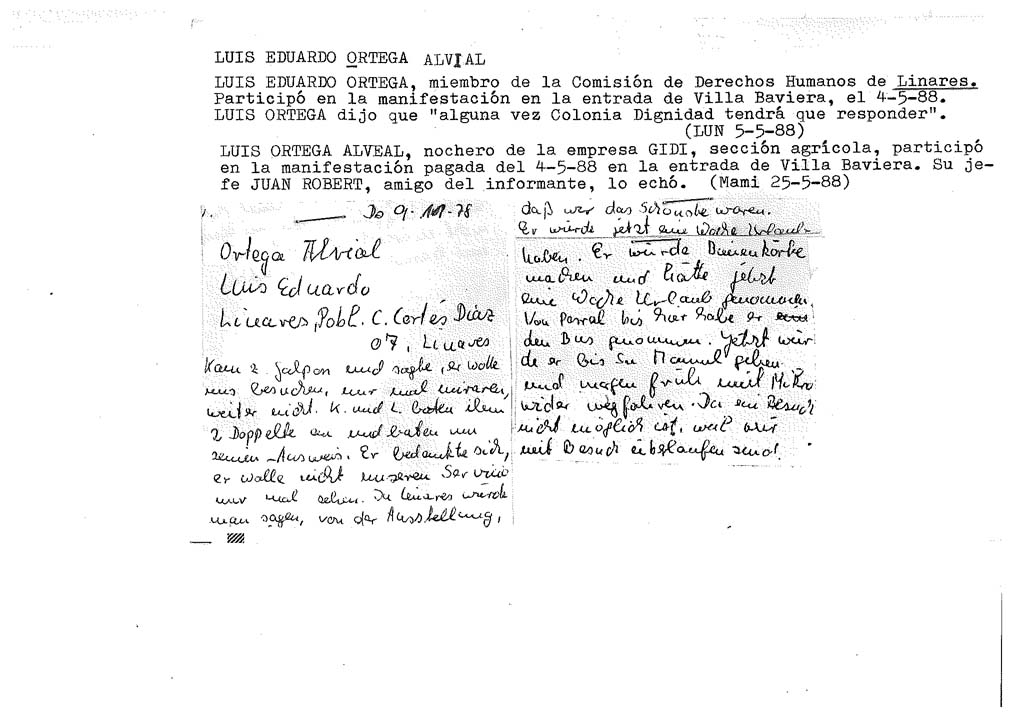 LUIS EDUARDO ORTEGA ALVIAL
LUIS EDUARDO ORTEGA, miembro de la Comisión de Derechos Humanos de Linares.
Participó en la manifestación en la entrada de Villa Baviera, el 4-5-88.
LUIS ORTEGA dijo que "alguna vez Colonia Dignidad tendrá que responder".
(LUN 5-5-88)
LUIS ORTEGA ALVEAL, nochero de la empresa GIDI, sección agrícola, participó
en la manifestación pagada del 4-5-88 en la entrada de Villa Baviera. Su je-
fe JUAN ROBERT, amigo del informante, lo echó. (Mami 25-5-88)
Do 9. 78
Ortega Alvial
Luis Eduardo
Linares, Pobl. C. Cortés Diaz
07, Linares
Kam z. Galpon und sagte, er wolle
uns besuchen, nur mal
weiter nicht. K. und L. boten ihm
2 Doppelte an und baten um
seinen Ausweis. Er bedankte sich,
er wolle nicht unseren Servicio
nur mal sehen. In Linares würde
man sagen, von der Ausstellung,
daß wir das Schönste waren.
Er würde jetzt eine Woche Urlaub
haben. Er würde Bienenkörbe
machen und hätte jetzt
eine Woche Urlaub genommen.
Von Parral bis hier habe er
den Bus genommen. Jetzt wür
de er bis Sn Manuel gehen
und morgen früh mit Mikro
wider wegfahren. Da ein Besuch
nicht möglich ist, weil wir
mit Besuch überlaufen sind.